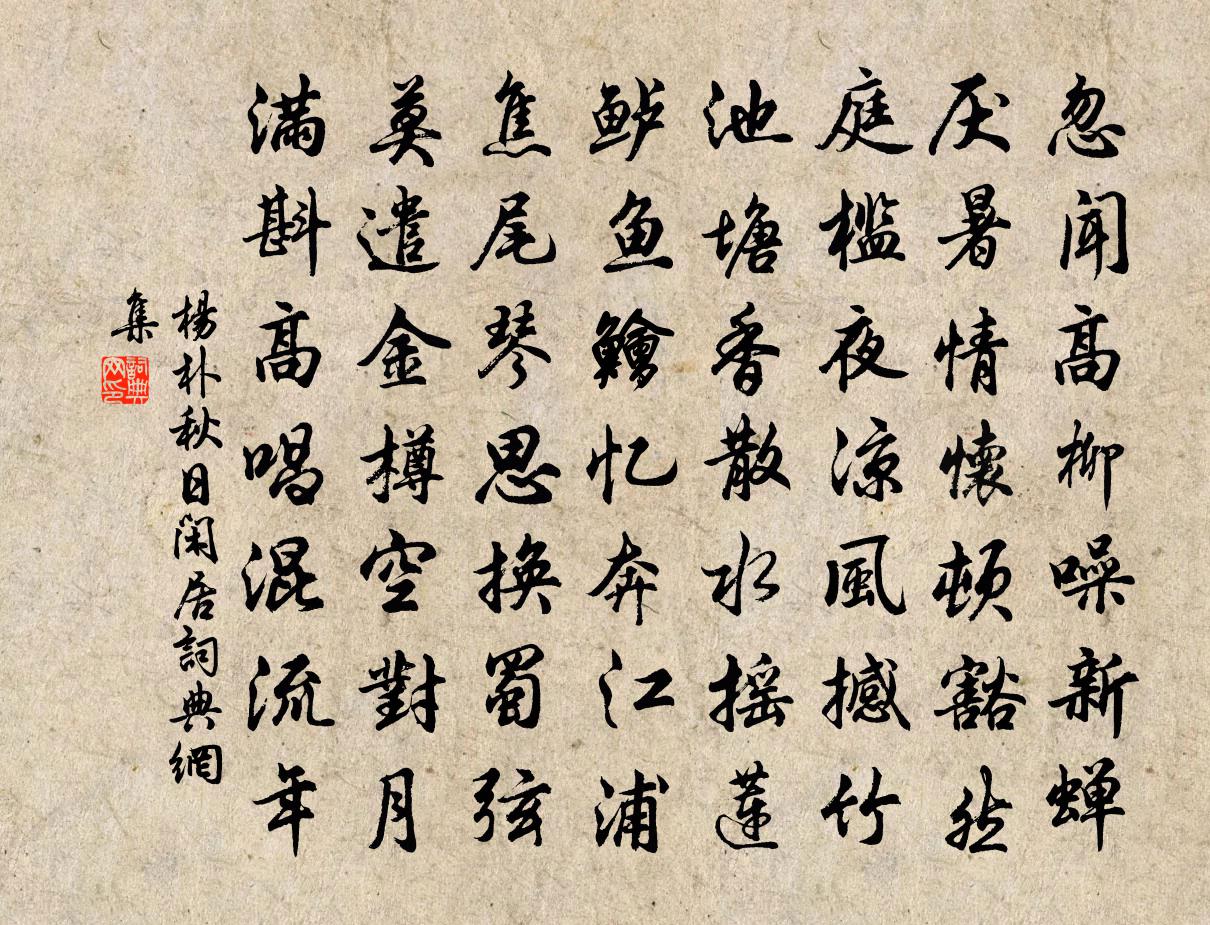 忽闻高柳噪新蝉
厌暑情懷顿豁然
庭槛夜凉風撼竹
池塘香散水摇莲
鲈鱼鱠忆奔江浦
焦尾琴思换蜀弦
莫遣金樽空對月
满斟高唱混流年
楊朴秋日闲居詞典網
集
詞典網印